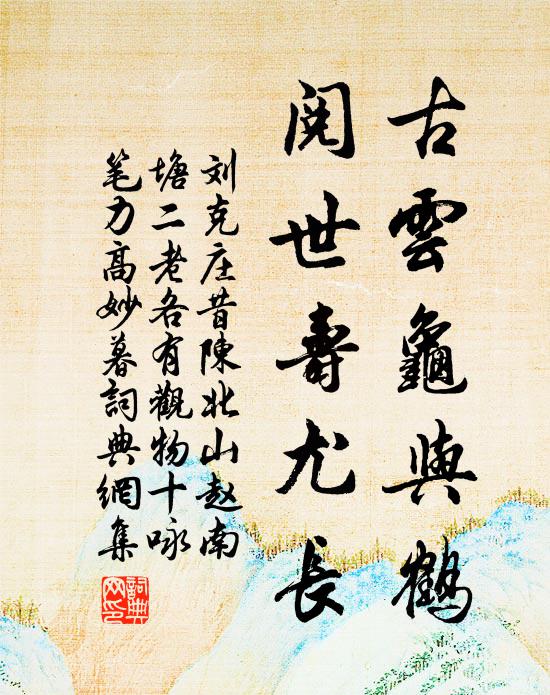 古雲龜與鶴
閱世壽尤長
刘克庄昔陳北山赵南
塘二老各有觀物十咏
笔力高妙暮詞典網集
詞典网印